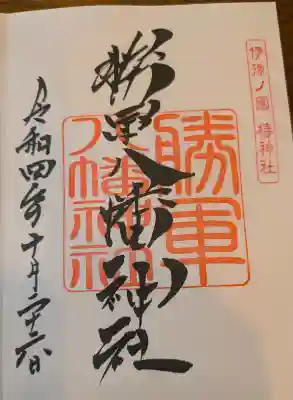 伊豫ノ國 椿神社
勝軍八幡神社
勝軍
八幡神社
令和四年十月二十二日